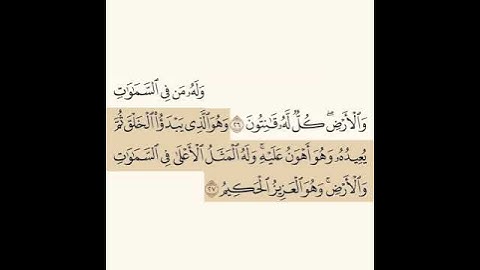 وَلَهُۥ مَن فِى ٱلسَّمَٰوَٰتِ
وَٱلْأَرْضِ ۖ كُلٌّ لَّهُۥ قَٰنِتُونَ ٢٦ وَهُوَ ٱلَّذِى يَبْدَؤُا۟ ٱلْخَلْقَ ثُمَّ
يُعِيدُهُۥ وَهُوَ أَهْوَنُ عَلَيْهِ ۚ وَلَهُ ٱلْمَثَلُ ٱلْأَعْلَىٰ فِى ٱلسَّمَٰوَٰتِ
وَٱلْأَرْضِ ۚ وَهُوَ ٱلْعَزِيزُ ٱلْحَكِيمُ ٢٧